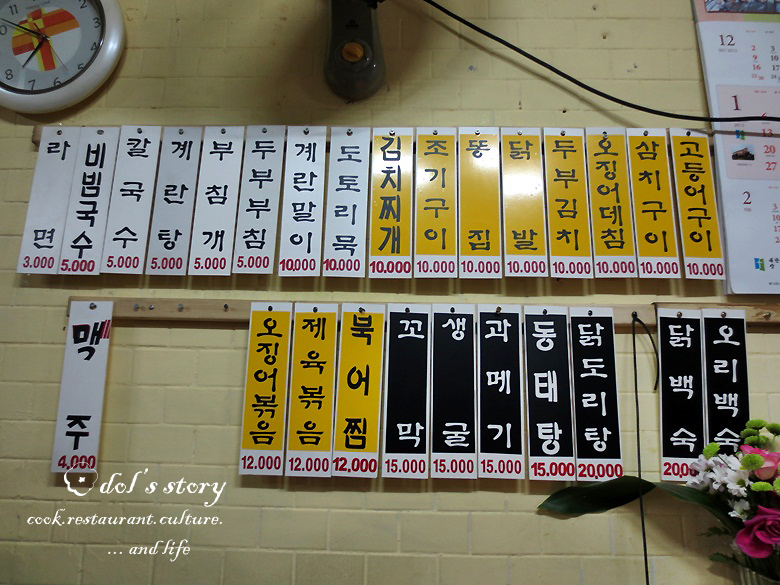 라면 3.000
비빔국수 5.000
칼국수 5.000
계란탕 5.000
부침개 5.000
두부부침 5.000
계란말이 10.000
도토리묵 10.000
김치찌개 10.000
조기구이 10.000
똥집 10.000
닭발 10.000
두부김치 10.000
오징어데침 10.000
삼치구이 10.000
고등어구이 10.000
맥주 4.000
오징어볶음 12.000
제육볶음 12.000
북어찜 12.000
꼬막 15.000
생굴 15.000
과메기 15.000
동태탕 15.000
닭도리탕 20,000
닭백숙
오리백숙
dol's story
cook.restaurant.culture.
... and life
12
1
2